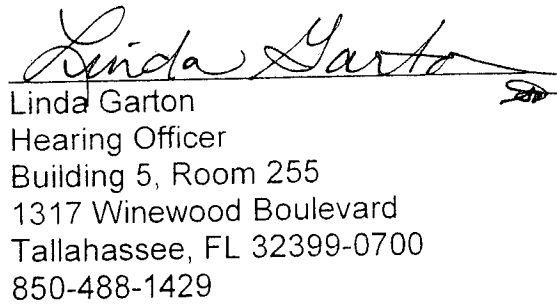 Linda Garton
Linda Garton
Hearing Officer
Building 5, Room 255
1317 Winewood Boulevard
Tallahassee, FL 32399-0700
850-488-1429